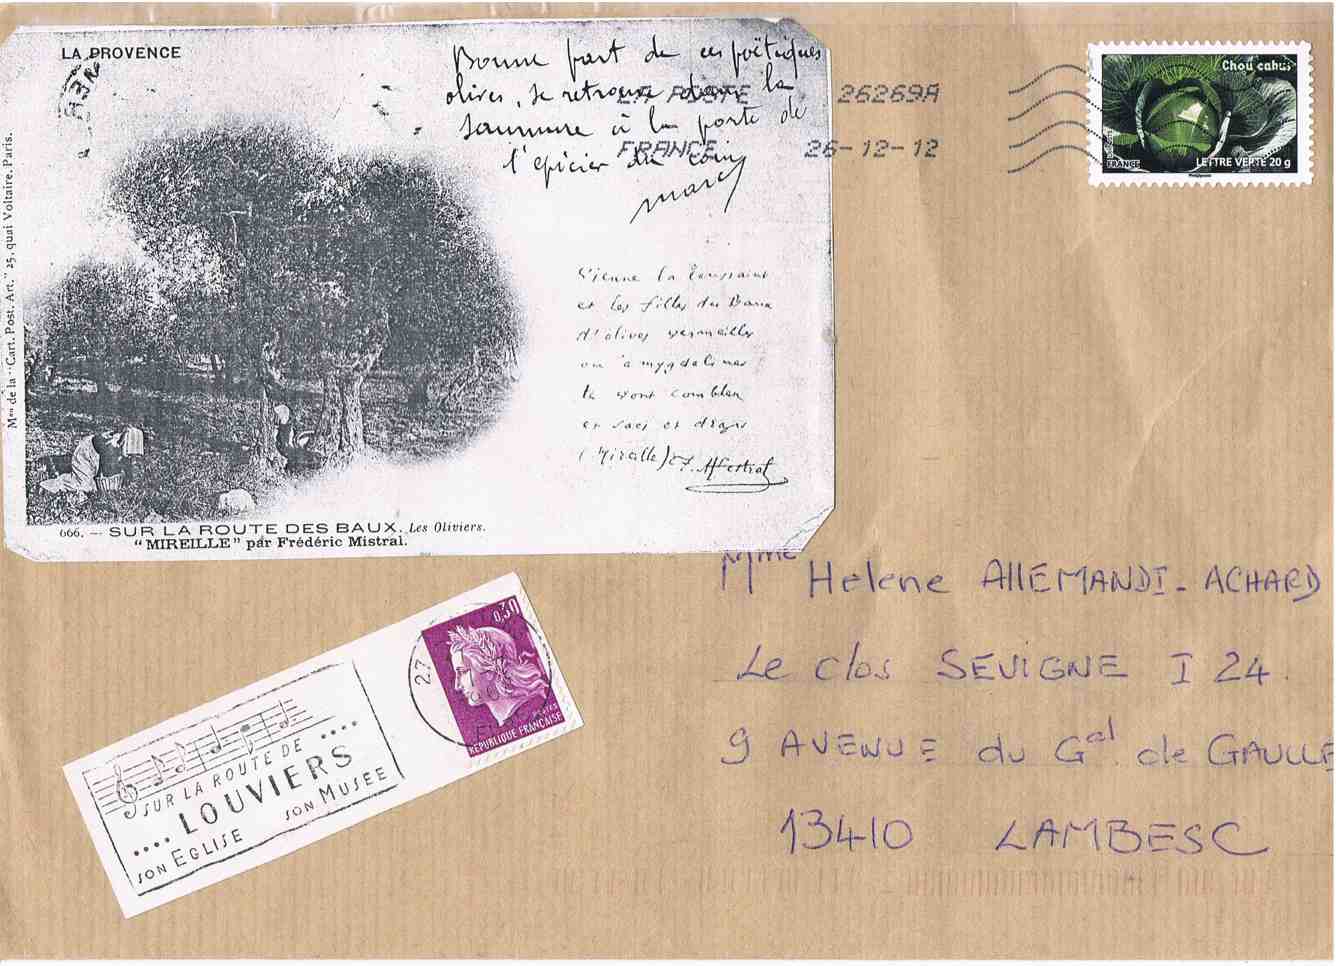 LA PROVENCE
Bonne part de ces poëtiques
olives, se retrouve dans la
saumure à la porte de
l'épicier du coin
marcy
LA POSTE 26269A
FRANCE 26-12-12
Chou cabus
FRANCE
LETTRE VERTE 20 g
Phil@poste
Mon de la "Cart. Post. Art." 25, quai Voltaire. Paris.
Vienne la Toussaint
et les filles des Baux
d'olives vermeilles
ou amygdalines
te vont combler
et sacs et draps
(Mireille) F. Mistral
666. — SUR LA ROUTE DES BAUX. Les Oliviers.
"MIREILLE" par Frédéric Mistral.
Mme Helene ALLEMANDI-ACHARD
Le clos SEVIGNE I 24
9 AVENUE du Gal de GAULLE
13410 LAMBESC
0,30
POSTES
REPUBLIQUE FRANÇAISE
27
SUR LA ROUTE DE ....
.... LOUVIERS
SON EGLISE SON MUSEE